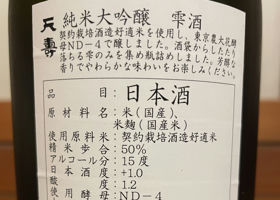 天寿
純米大吟醸 雫酒
契約栽培酒造好適米を使用し、東京農大花酵
母ND-4で醸しました。酒袋からしたたり
落ちる雫のみを集め瓶詰めしました。芳醇な
香りでやわらかな味わいをお楽しみください。
品目:日本酒
原材料名:米(国産)、
米麹(国産米)
使用原料米:契約栽培酒造好適米
精米歩合:50%
アルコール分:15度
日本酒度:+1.0
酸度:1.2
使用酵母:ND-4